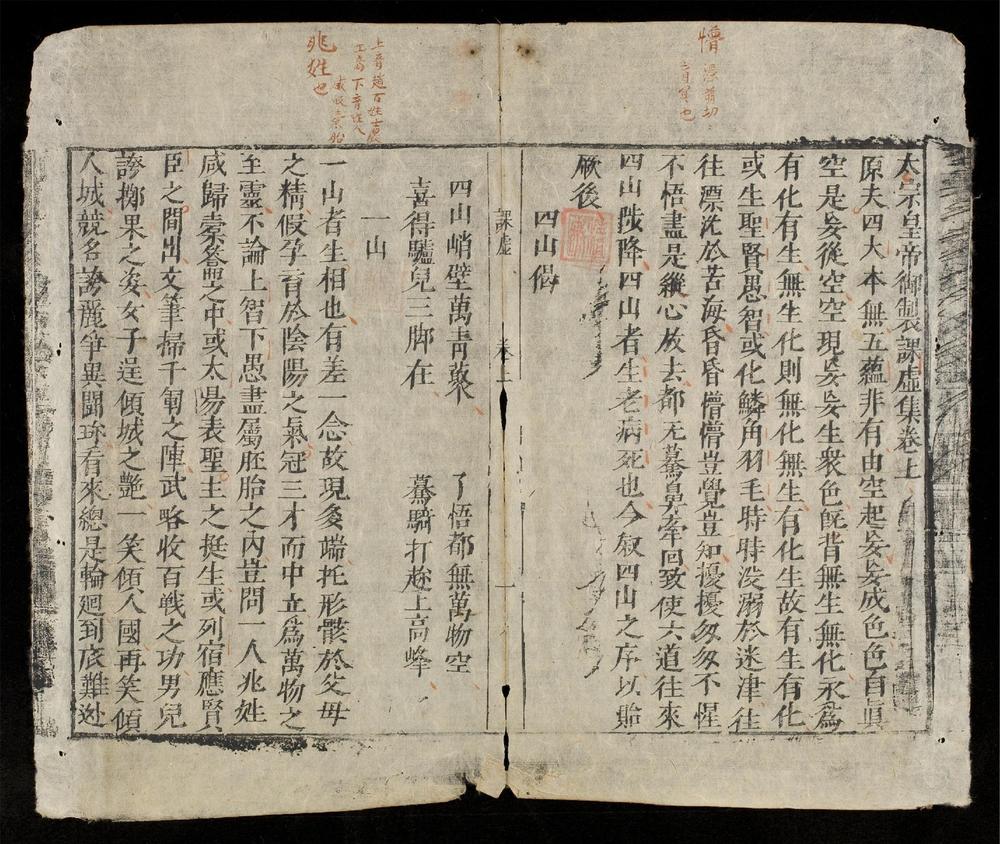 太宗皇帝御製課虛集卷上
原夫四大本無五蘊非有由空起妄妄成色色自眞
空是妄從空空現妄妄生衆色旣背無生無化永爲
有化有生無生化則無化無生有化生故有生有化
或生聖賢愚智或化鱗角羽毛時時没溺於迷津往
往漂沈於苦海昏昏懵懵豈覺豈知擾擾匆匆不惺
不悟盡是縱心放去都无驀鼻牽回致使六道往來
四山陟降四山者生老病死也今叙四山之序以貽
厥後
四山偈
四山峭壁萬青叢 了悟都無萬物空
喜得驢兒三脚在 驀騎打趂上高峰
課虛 卷上 一
一山
一山者生相也有差一念故現多端托形骸於父母
之精假孕育於陰陽之氣冠三才而中立爲萬物之
至靈不論上智下愚盡屬胚胎之內豈問一人兆姓
咸歸橐籥之中或太昜表聖主之挺生或列宿應賢
臣之間出文筆掃千軍之陣武略收百戦之功男兒
誇擲果之姿女子逞傾城之艶一笑傾人國再笑傾
人城競名誇麗爭異聞珎看來總是輪廻到底難迯
懵
音夢也
兆姓也
上音趙百姓